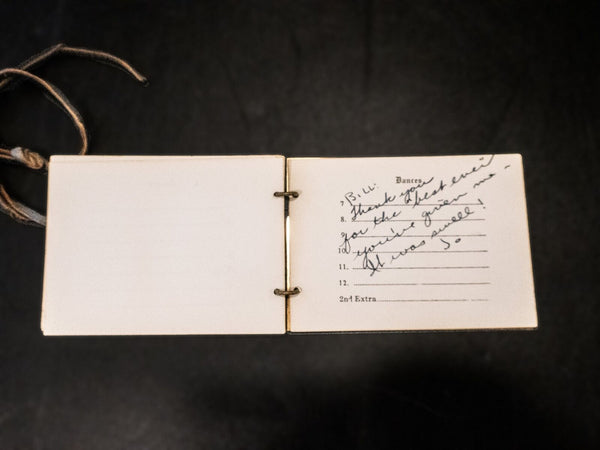 Dances
Bill:
7. Thank you
8. for the best ever
9. you've given me -
10. It was swell!
Jo
11.
12.
2nd Extra